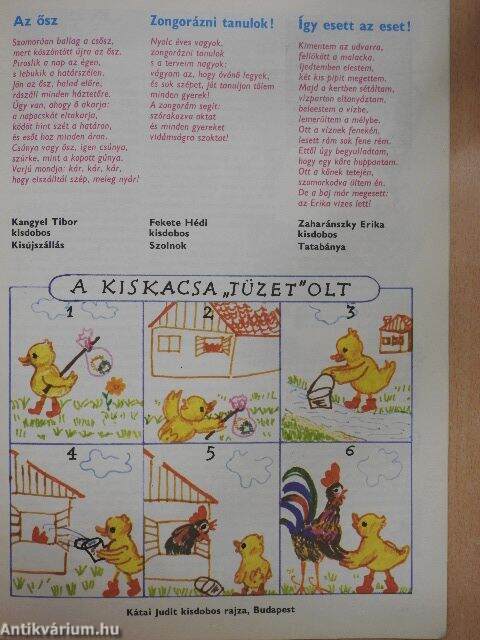 Az ősz
Szomorúan ballag a csősz,
mert köszöntött újra az ősz.
Piroslik a nap az égen,
s lebukik a határszélen.
Jön az ősz, halad előre,
rászáll minden háztetőre.
Úgy van, ahogy ő akarja:
a napocskát eltakarja,
ködöt hint szét a határon,
és esőt hoz minden áron.
Csúnya vagy ősz, igen csúnya,
szürke, mint a kopott gúnya.
Varjú mondja: kár, kár, kár,
hogy elszálltál szép, meleg nyár!
Kangyel Tibor
kisdobos
Kisújszállás
Zongorázni tanulok!
Nyolc éves vagyok,
zongorázni tanulok
s a terveim nagyok:
vágyom az, hogy óvónő legyek,
és sok szépet, jót tanuljon tőlem
minden gyerek!
A zongorám segít:
szórakozva oktat
és minden gyereket
vidámságra szoktat!
Fekete Hédi
kisdobos
Szolnok
Így esett az eset!
Kimentem az udvarra,
fellökött a malacka.
Ijedtemben elestem,
két kis pipit megettem.
Majd a kertben sétáltam,
vízparton eltanyáztam,
beleestem a vízbe,
lemerültem a mélybe.
Ott a víznek fenekén,
lesett rám sok fene rém.
Ettől úgy begyulladtam,
hogy egy kőre huppantam.
Ott a kőnek tetején,
szomorkodva ültem én.
De a baj már megesett:
az Erika vizes lett!
Zaharánszky Erika
kisdobos
Tatabánya
A KISKACSA „TÜZET" OLT
1
2
3
4
5
6
Kátai Judit kisdobos rajza, Budapest
Antikvárium.hu